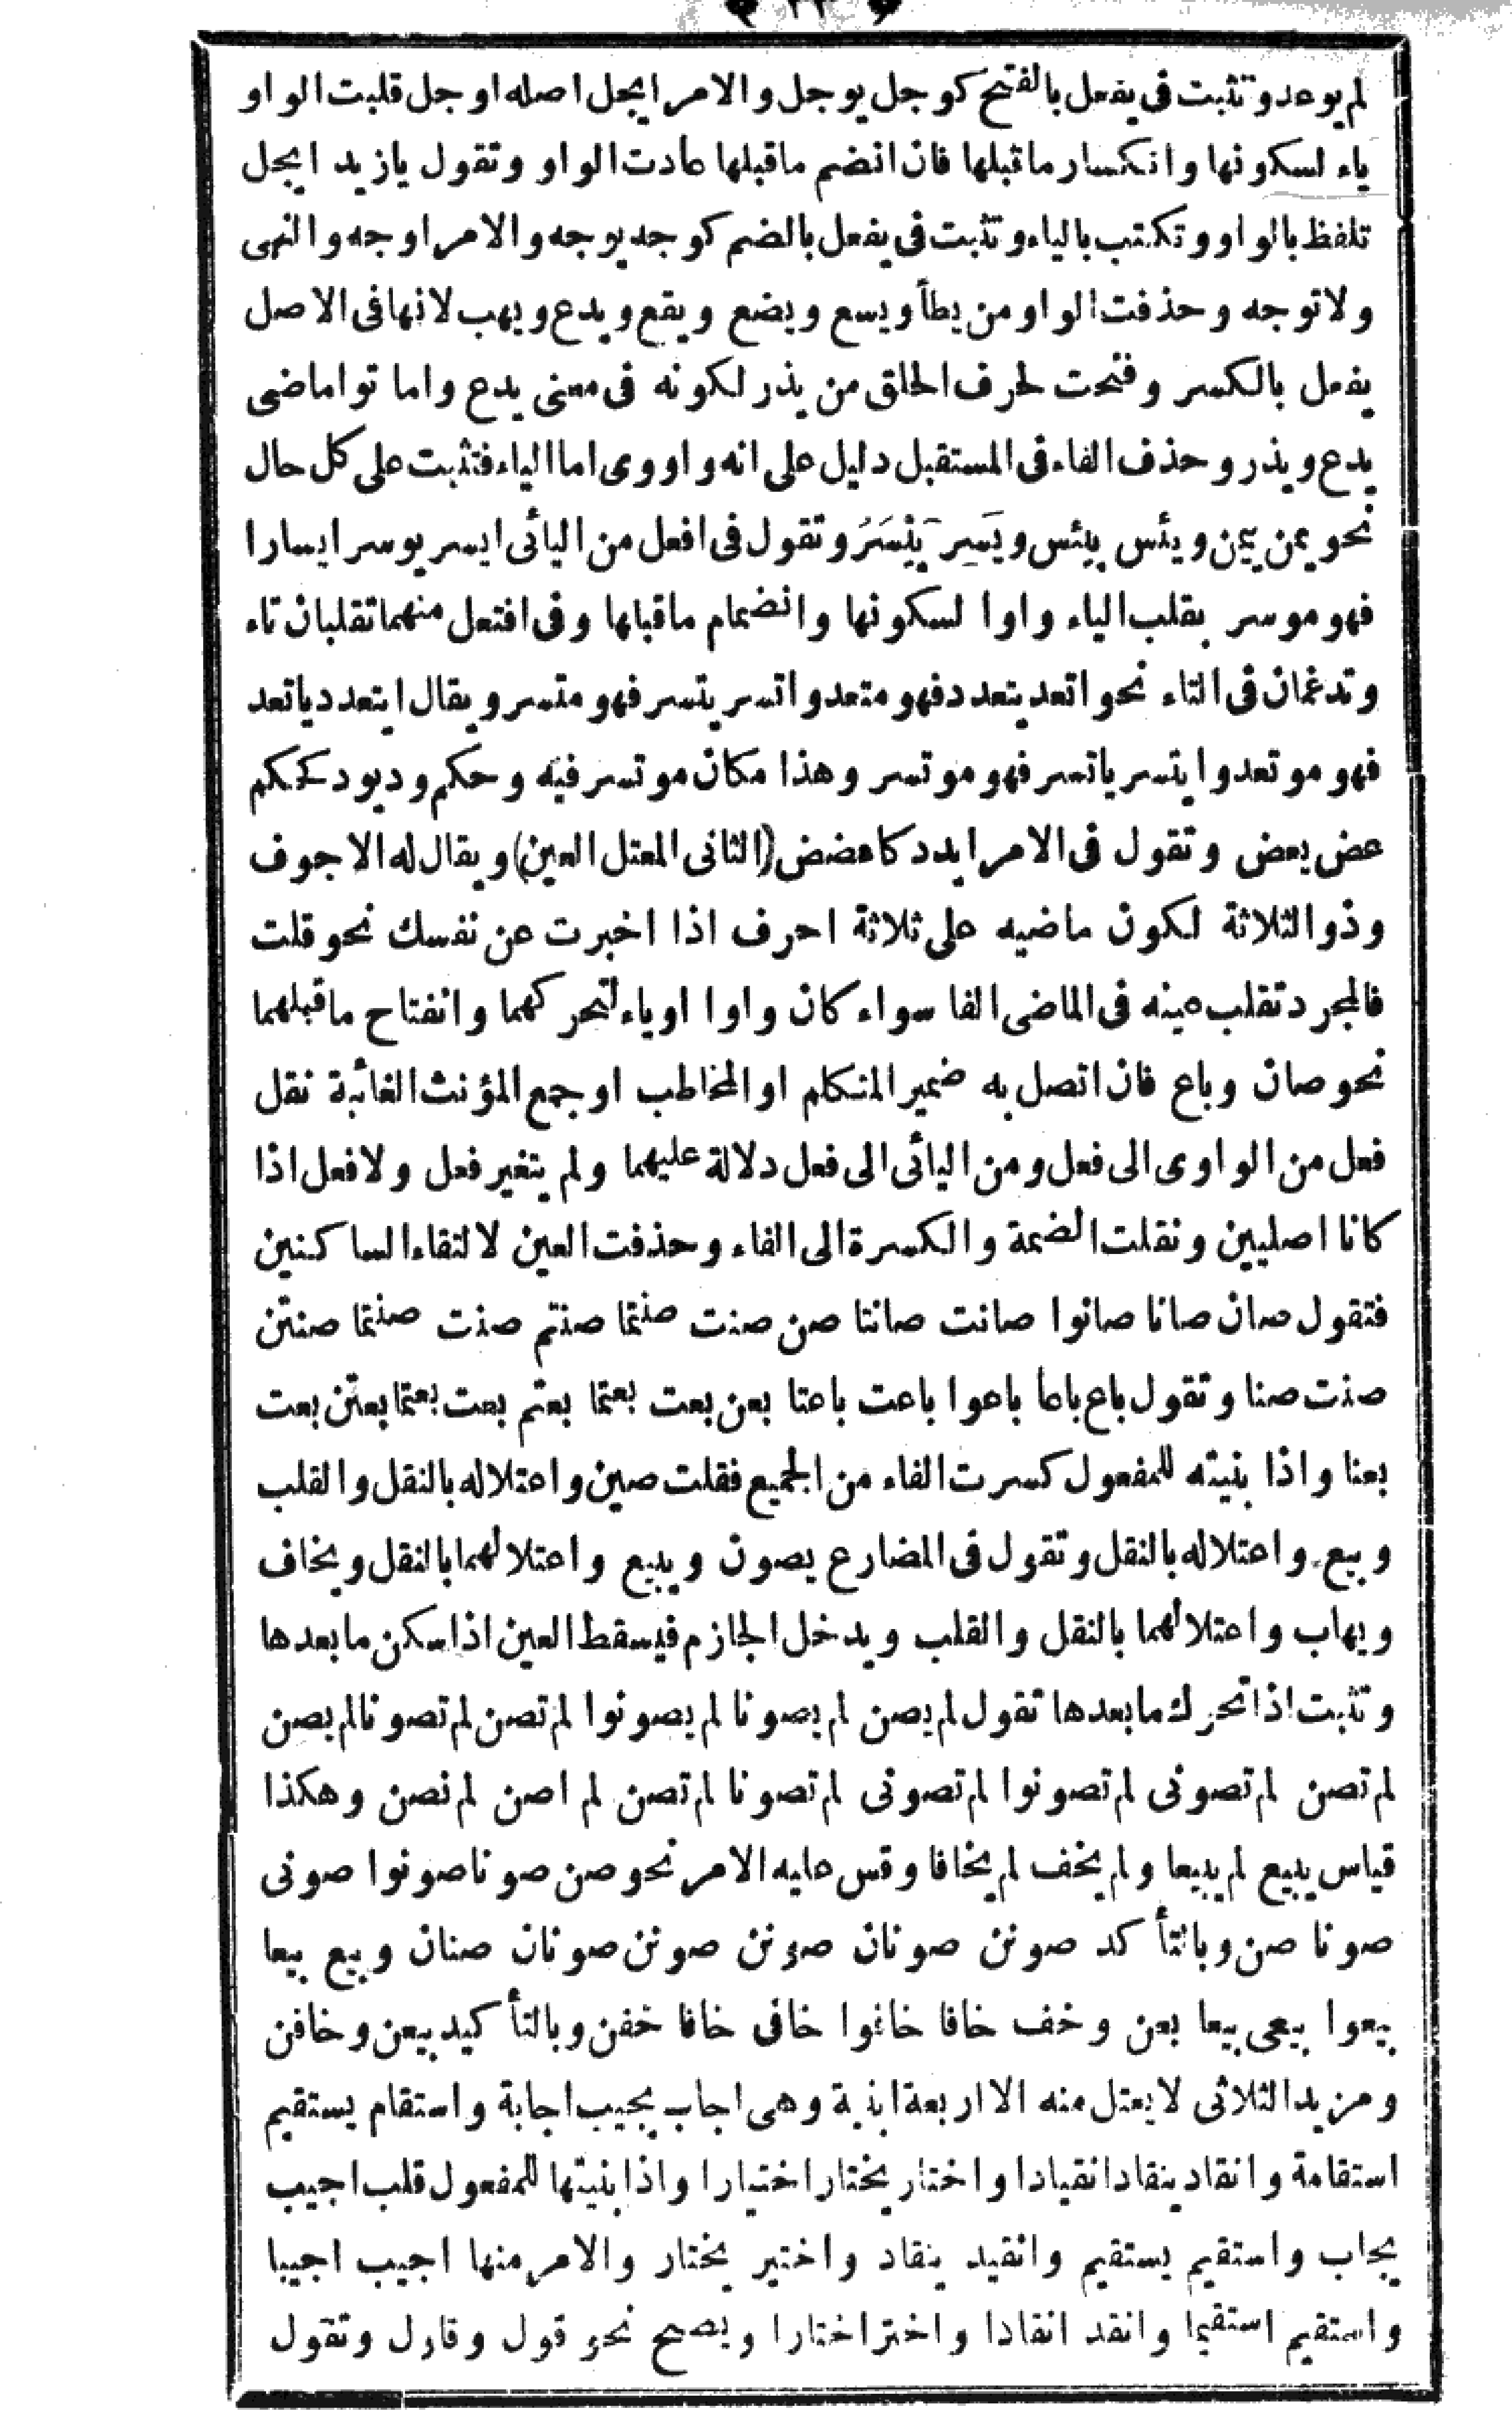 لم يوعد وتثبت فى يفعل بالفتح كوجل يوجل والامر ايجل اصله اوجل قلبت الواو
ياء لسكونها وانكسار ماقبلها فان انضم ماقبلها عادت الواو وتقول يازيد ايجل
تلفظ بالواو وتكتب بالياء وتثبت فى يفعل بالضم كوجه يوجه والامر اوجه والنهى
ولاتوجه وحذفت الواو من يطأ ويسع ويضع ويقع ويدع ويهب لانها فى الاصل
يفعل بالكسر وفتحت لحرف الحلق من يذر لكونه فى معنى يدع واما تواماضى
يدع ويذر وحذف الفاء فى المستقبل دليل على انه واووى اما الياء فتثبت على كل حال
نحو يمن ييمن ويئس ييئس ويَسِر يَيْسَرُ وتقول فى افعل من اليائى ايسر يوسر ايسارا
فهو موسر بقلب الياء واوا لسكونها وانضمام ماقبلها وفى افتعل منهما تقلبان تاء
وتدغمان فى التاء نحو اتعد يتعد دفهو متعد واتسر يتسر فهو متسر ويقال ايتعدد ياتعد
فهو موتعد وايتسر ياتسر فهو موتسر وهذا مكان موتسر فيه وحكم وديود كحكم
عض بعض وتقول فى الامر ايدد كاعضض (الثانى المعتل العين) ويقال له الاجوف
وذوالثلاثة لكون ماضيه على ثلاثة احرف اذا اخبرت عن نفسك نحو قلت
فالمجرد تقلب عينه فى الماضى الفا سواء كان واوا اوياء لتحركهما وانفتاح ماقبلهما
نحو صان وباع فان اتصل به ضمير المتكلم او المخاطب او جمع المؤنث الغائبة نقل
فعل من الواوى الى فعل ومن اليائى الى فعل دلالة عليهما ولم يتغير فعل ولافعل اذا
كانا اصليين ونقلت الضمة والكسرة الى الفاء وحذفت العين لالتقاء الساكنين
فتقول صان صانا صانوا صانت صانتا صن صنت صنتما صنتم صنت صنتما صنتن
صنت صنا وتقول باع باعا باعوا باعت باعتا بعن بعت بعتما بعتم بعت بعتما بعتن بعت
بعنا واذا بنيته للمفعول كسرت الفاء من الجميع فقلت صين واعتلاله بالنقل والقلب
وبيع واعتلاله بالنقل وتقول فى المضارع يصون ويبيع واعتلالهما بالنقل ويخاف
ويهاب واعتلالهما بالنقل والقلب ويدخل الجازم فيسقط العين اذا سكن مابعدها
وتثبت اذا تحرك مابعدها تقول لم يصن لم يصونا لم يصونوا لم تصن لم تصونا لم يصن
لم تصن لم تصونى لم تصونوا لم تصونى لم تصونا لم تصن لم اصن لم نصن وهكذا
قياس يبيع لم يبيعا ولم يخف لم يخافا وقس عليه الامر نحو صن صونا صونوا صونى
صونا صن وبالتأكد صونن صونان صونن صونن صونان صنان وبيع بيعا
بيعوا بيعى بيعا بعن وخف خافا خافوا خافى خافا خفن وبالتأكيد بيعن وخافن
ومزيد الثلاثى لايعتل منه الا اربعة ابنية وهى اجاب يجيب اجابة واستقام يستقيم
استقامة وانقاد ينقاد انقيادا واختار يختار اختيارا واذا بنيتها للمفعول قلب اجيب
يجاب واستقيم يستقيم وانقيد ينقاد واختير يختار والامر منها اجيب اجيبا
واستقيم استقيما وانقد انقادا واختر اختارا ويصح نحو قول وقاول وتقول